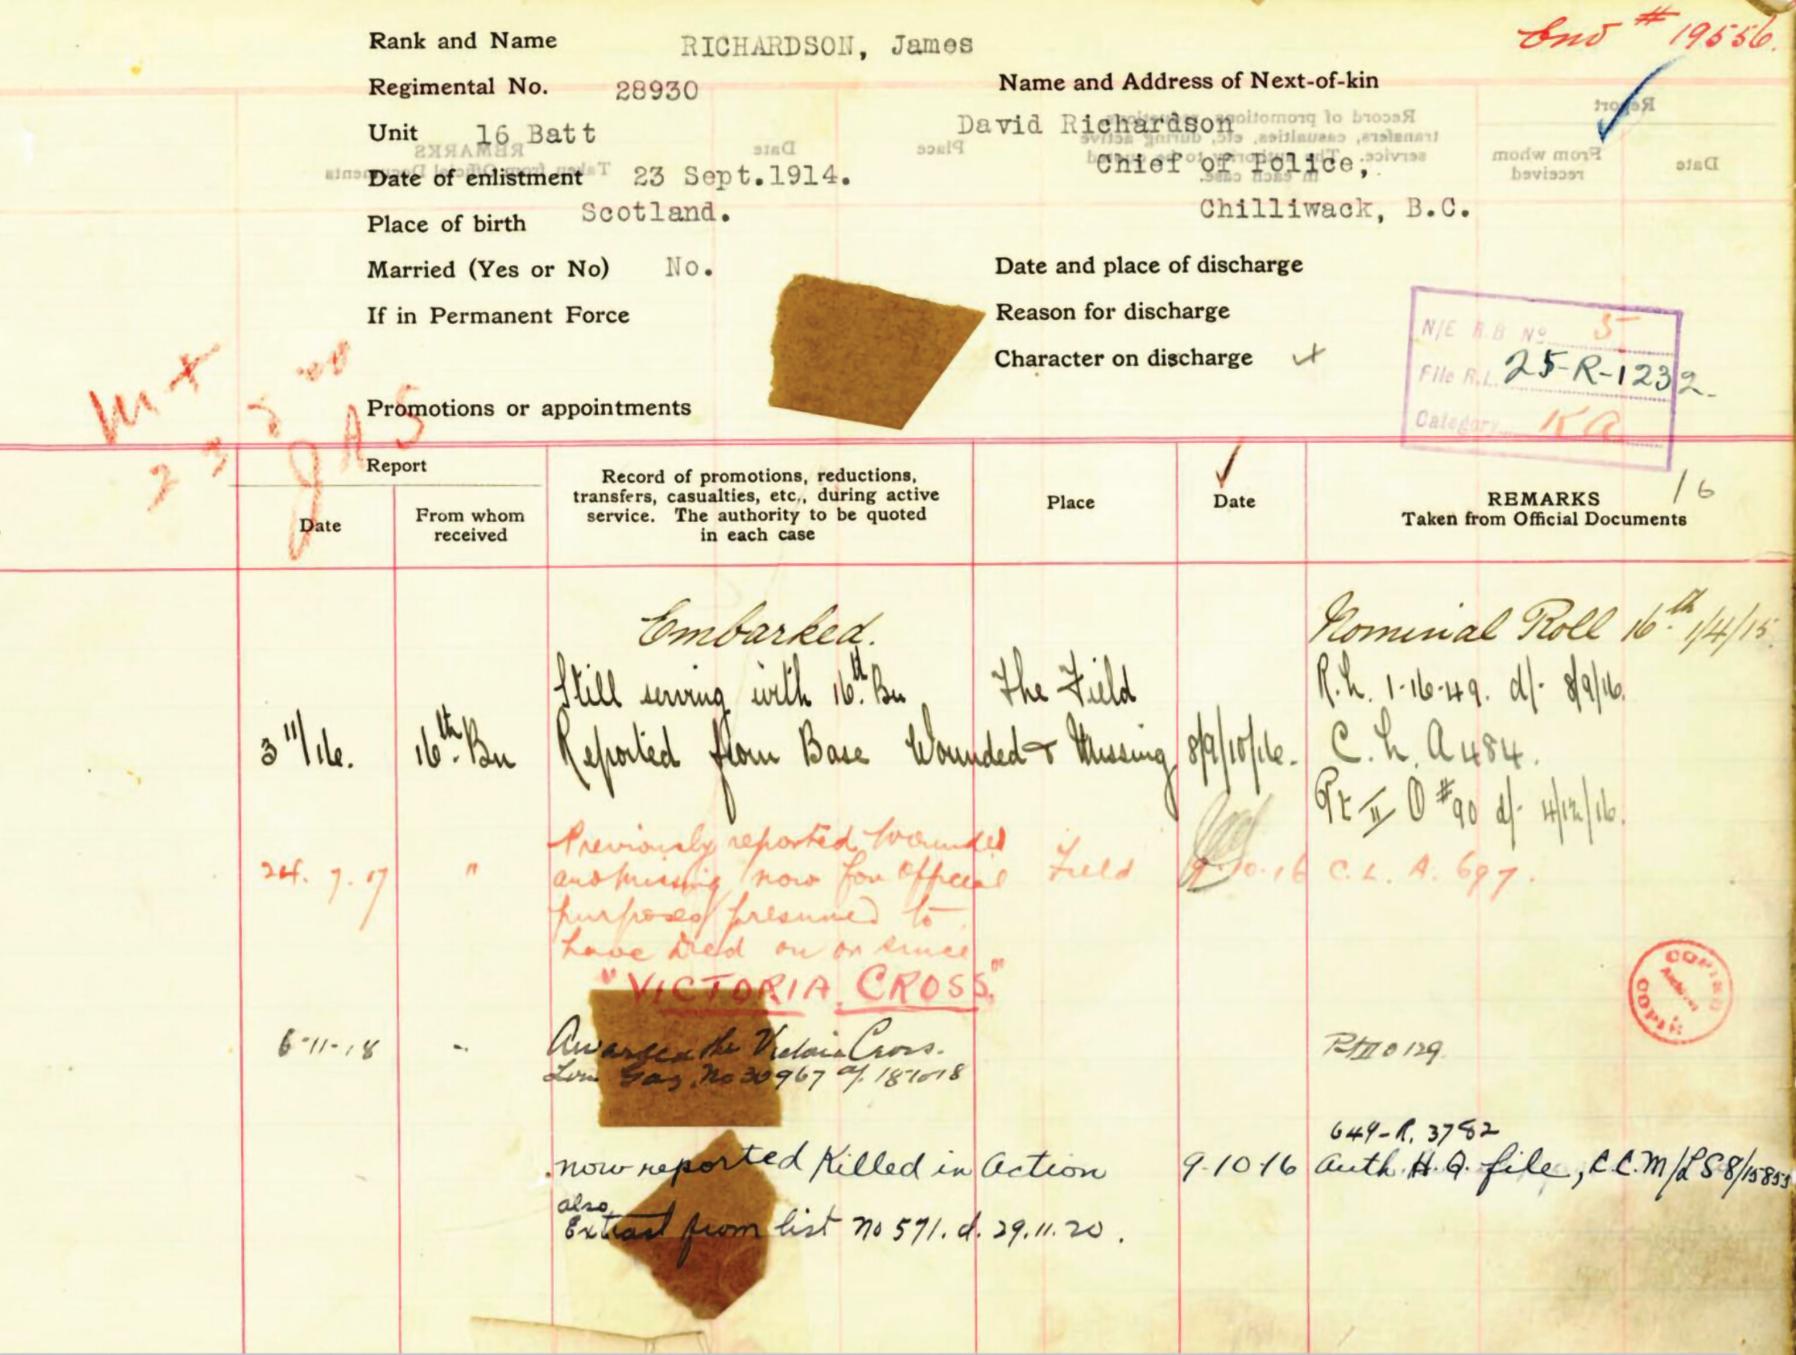 Eno # 19556.
Rank and Name RICHARDSON, James
Regimental No. 28930
Name and Address of Next-of-kin
Unit 16 Batt
David Richardson
Date of enlistment 23 Sept.1914.
Chief of Police,
Place of birth Scotland.
Chilliwack, B.C.
Married (Yes or No) No.
Date and place of discharge
If in Permanent Force
Reason for discharge
Character on discharge
N/E R.B No 5
File R.L. 25-R-1232.
Category KA
Promotions or appointments
JAS
16
Report
Date
From whom
received
Record of promotions, reductions,
transfers, casualties, etc., during active
service. The authority to be quoted
in each case
Place
Date
REMARKS
Taken from Official Documents
Embarked. Nominal Roll 16th 1/4/15
Still serving with 16th Bn The Field R.L. 1-16-49. d/- 8/9/16.
3 11/16. 16th Bn Reported from Base Wounded & Missing 8/9/10/16. C.L. A484.
Pt II O #90 d/- 4/12/16.
Previously reported Wounded
24. 7. 17 " and Missing now for official Field 10.16 C.L. A. 697.
purposes presumed to
have died on or since
"VICTORIA CROSS"
6-11-18 Awarded the Victoria Cross. Pt II O 129.
Lon Gaz. No 30967 of 181018
649-R. 3782
now reported Killed in Action 9-10-16 Auth. H.Q. file, C.C.M/LS-8/15853
also
Extract from list No 571. d. 29.11.20.
COPIED